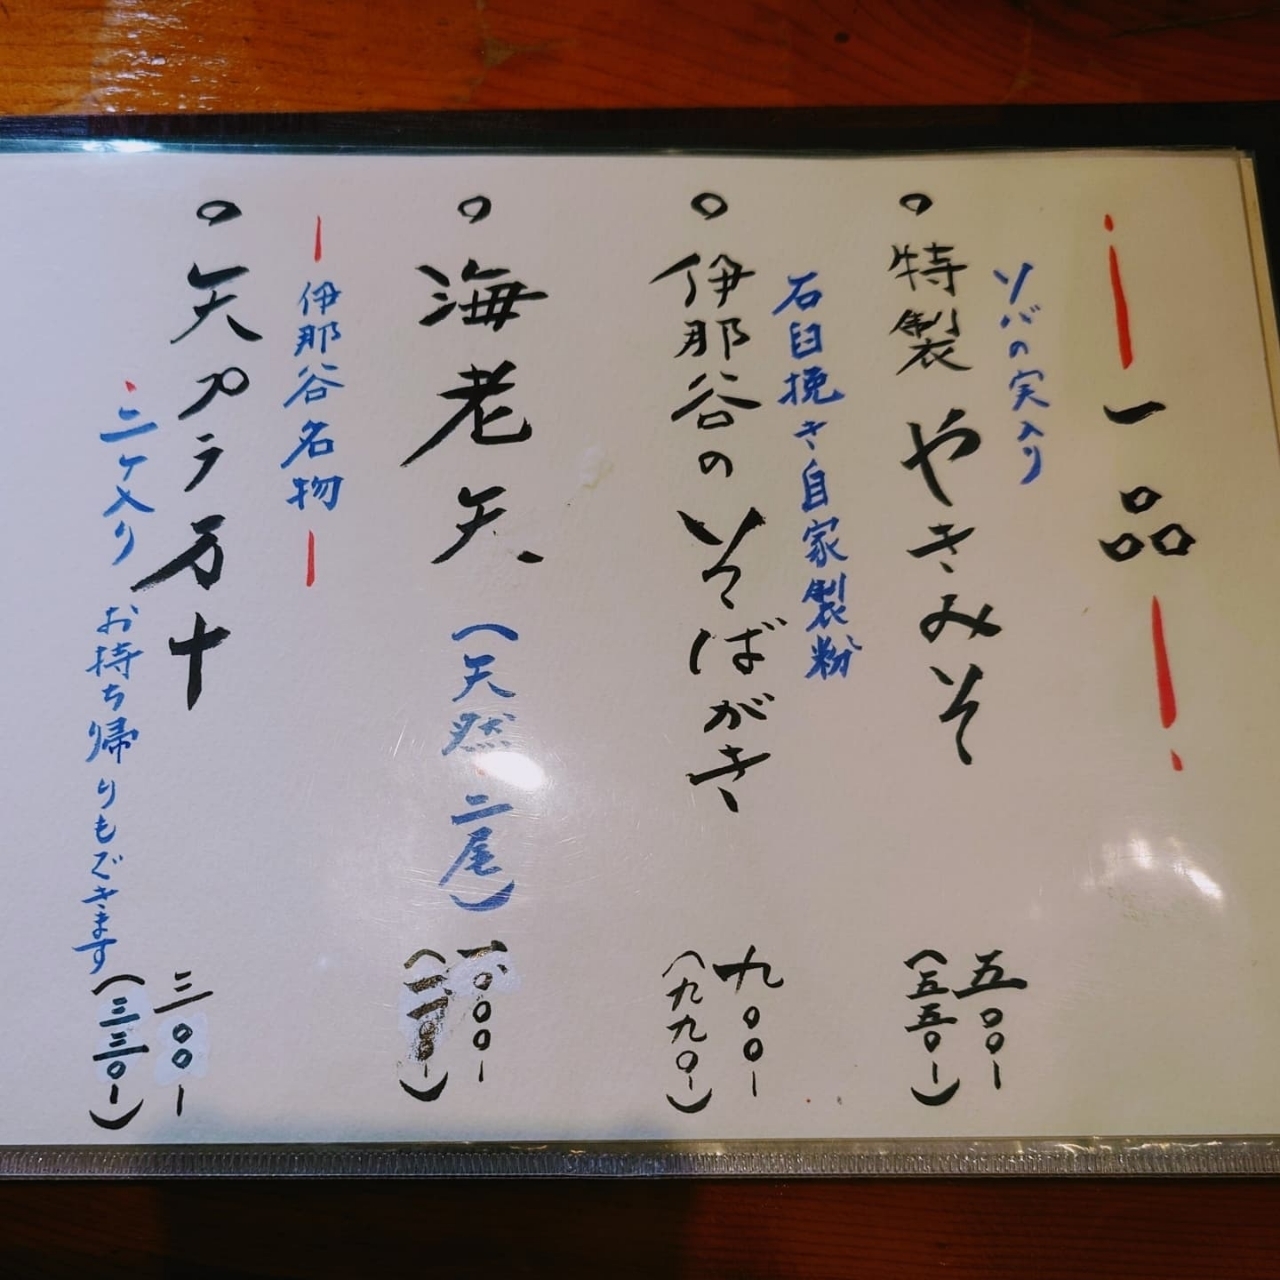 一品
ソバの実入り
特製 やきみそ
五〇〇-
(五五〇-)
石臼挽き自家製粉
伊那谷のそばがき
九〇〇-
(九九〇-)
海老天(天然 二尾)
一、〇〇〇-
伊那谷名物
天プラ万十
二ヶ入り お持ち帰りもできます
三〇〇-
(三三〇-)